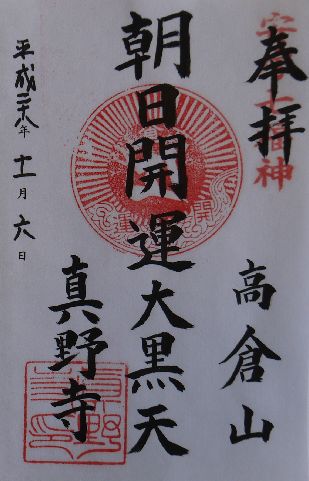 奉拝
高倉山
朝日開運大黒天
真野寺
平成二十八年十一月六日
開運